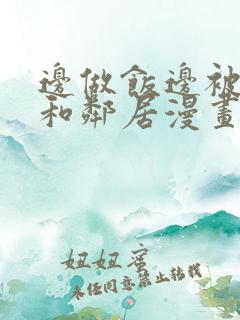 邊做飯邊被
和鄰居漫畫
妞妞蜜
未經同意禁止轉載